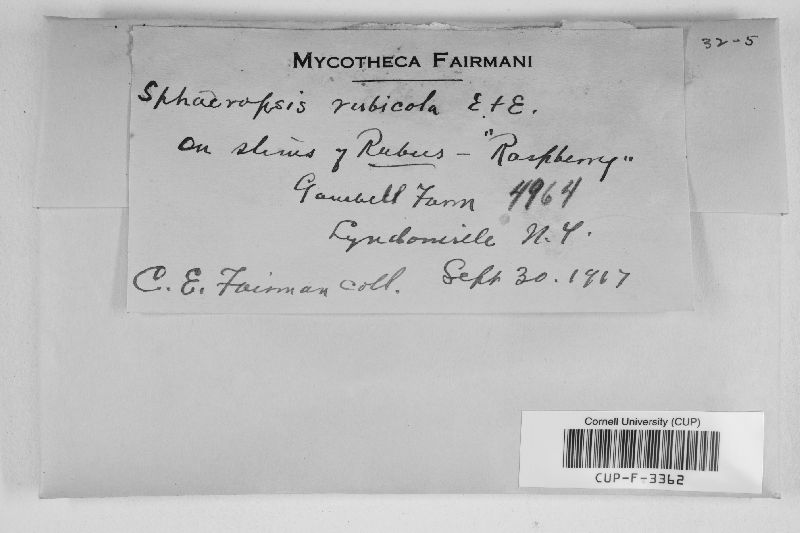 32-5
MYCOTHECA FAIRMANI
Sphaeropsis rubicola E & E.
on stems of Rubus - "Raspberry"
Farm 4964
Lyndonville N.Y.
C. E. Fairman coll. Sept 30. 1917
Cornell University (CUP)
CUP-F-3362